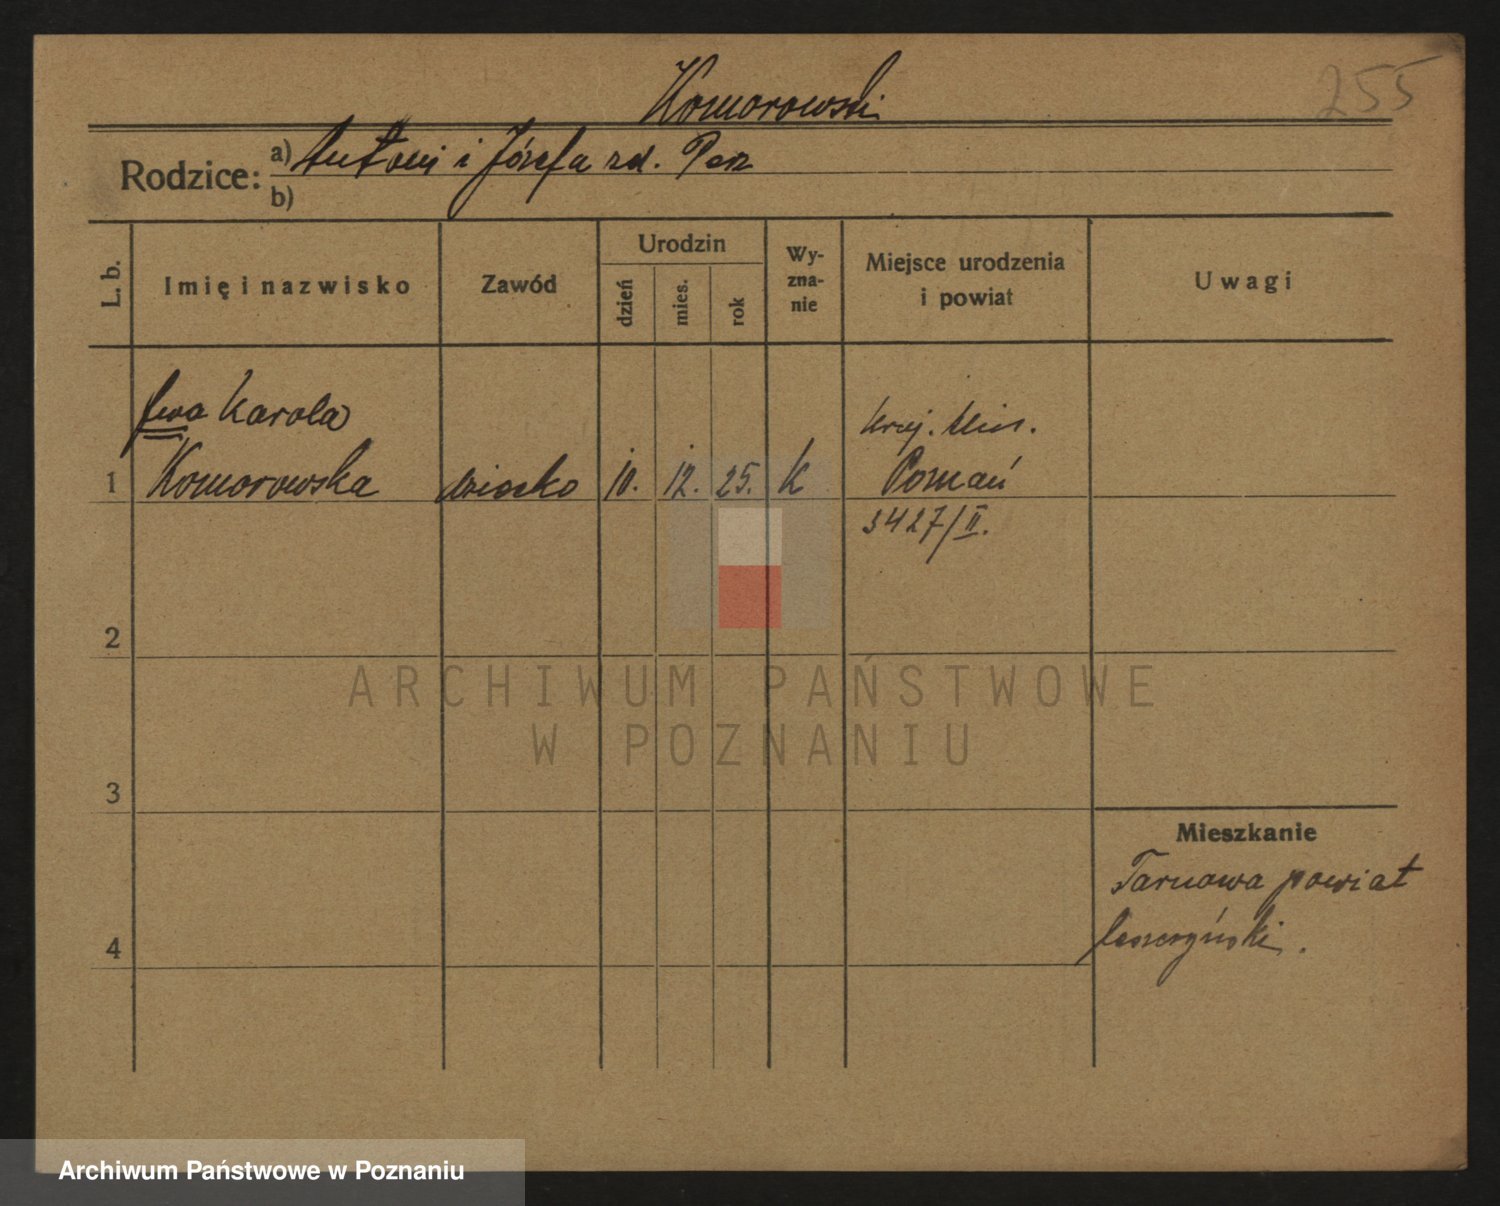 255
Komorowski
Rodzice: a) Antoni i Józefa zd. Perz
b)
L. b.
Imię i nazwisko
Zawód
Urodzin
dzień
mies.
rok
Wy-
zna-
nie
Miejsce urodzenia
i powiat
Uwagi
Ewa Karola
1 Komorowska dziecko 10. 12. 25. K
Poznań
3427/II.
2
3
4
Mieszkanie
Tarnowa powiat
leszczyński.
ARCHIWUM PAŃSTWOWE
W POZNANIU
Archiwum Państwowe w Poznaniu